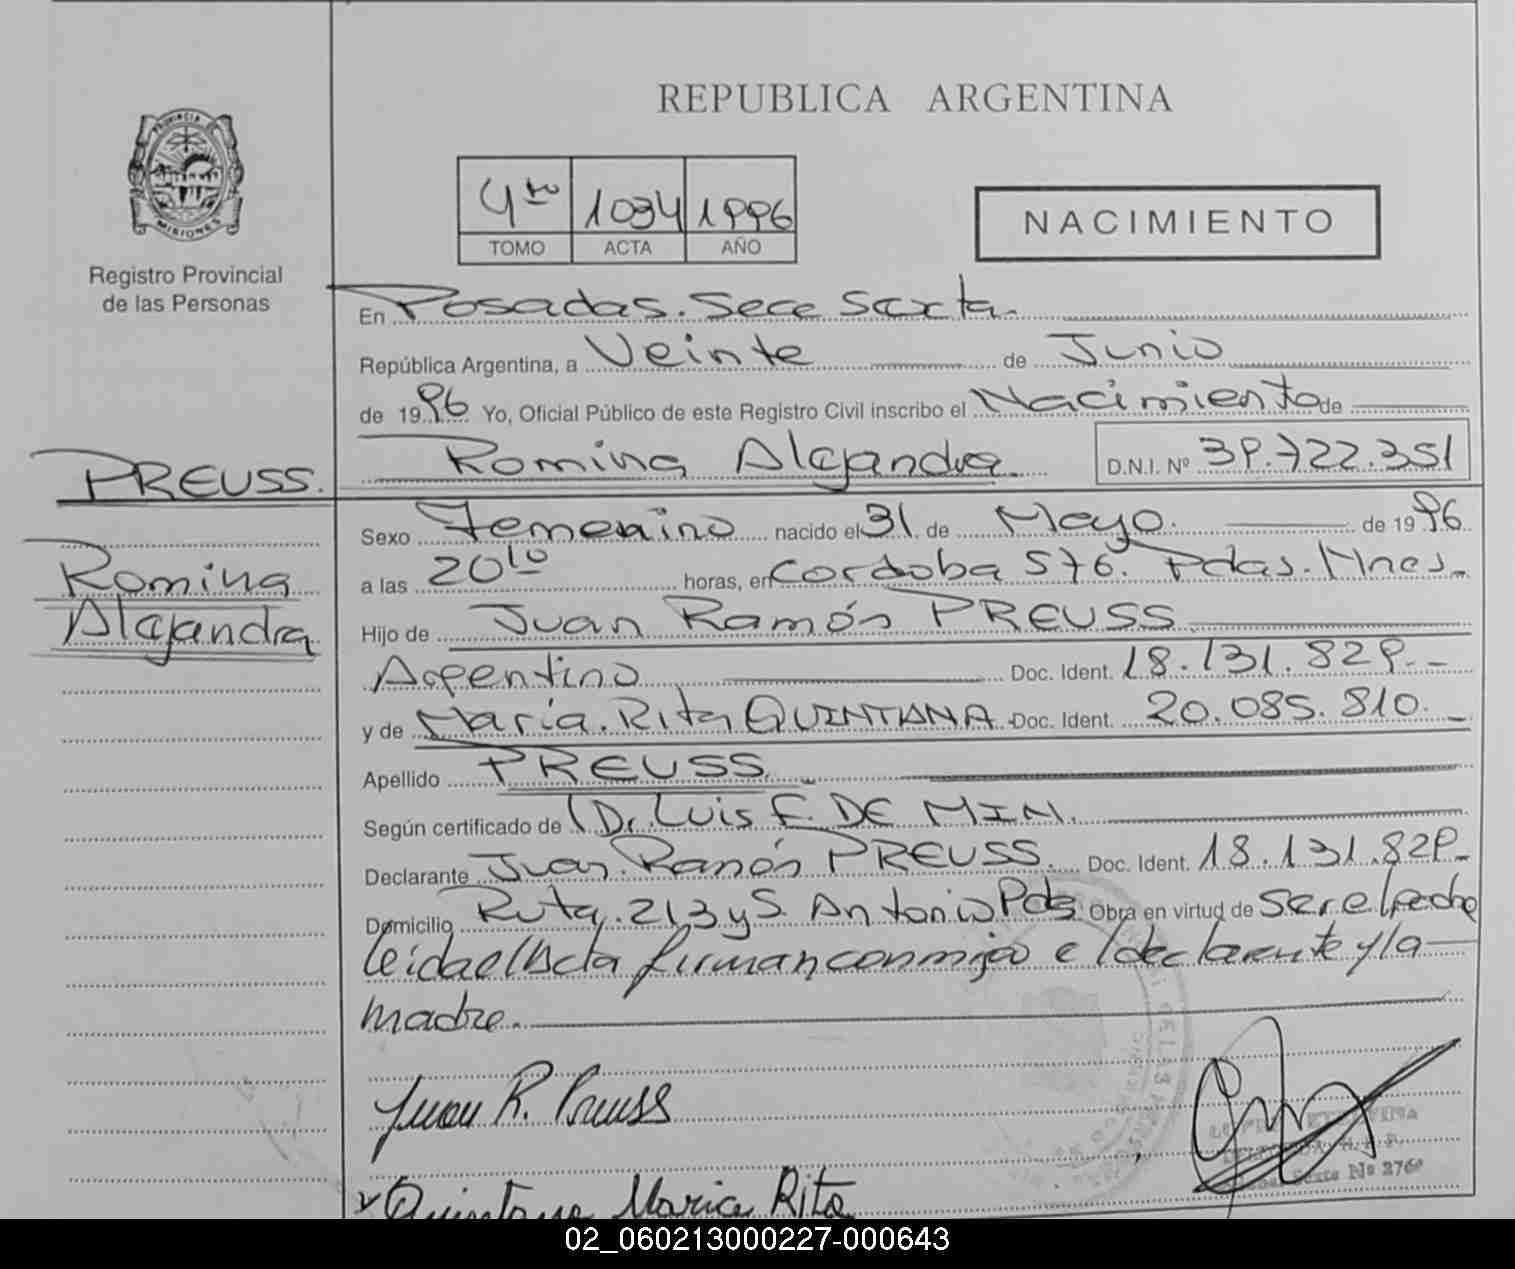 REPUBLICA ARGENTINA
PROVINCIA DE
MISIONES
Registro Provincial
de las Personas
4to 1034 1996
TOMO ACTA AÑO
NACIMIENTO
En Posadas. Secc Sexta.
República Argentina, a Veinte de Junio
de 1996 Yo, Oficial Público de este Registro Civil inscribo el Nacimiento de
Romina Alejandra. D.N.I. Nº 39.722.351
PREUSS.
Romina
Alejandra
Sexo Femenino nacido el 31 de Mayo. de 1996
a las 20 10 horas, en Cordoba 576. Pdas. Mnes.
Hijo de Juan Ramón PREUSS
Argentino Doc. Ident. 18.131.829.-
y de María Rita QUINTANA Doc. Ident. 20.085.810.-
Apellido PREUSS.
Según certificado de Dr. Luis F. DE MIN.
Declarante Juan Ramón PREUSS. Doc. Ident. 18.131.829-
Domicilio Ruta 213 y S. Antonio Pds Obra en virtud de ser el padre
leida el Acta firman conmigo el declarante y la
madre.
Juan R. Preuss
Nº 276
Quintana Maria Rita
02_060213000227-000643